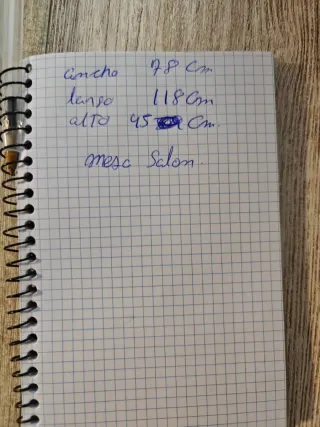 ancho 78 cm
largo 118 cm
alto 45 cm.
mesa salon.